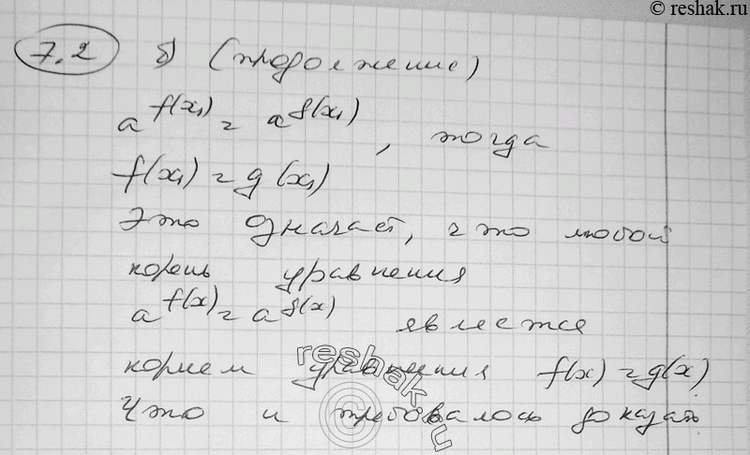 © reshak.ru
7.2 б) (продолжение)
a^f(x₁) = a^g(x₁), тогда
f(x₁) = g(x₁)
Это означает, что любой
корень уравнения
a^f(x) = a^g(x) является
корнем уравнения f(x) = g(x)
Что и требовалось доказать
reshak.ru